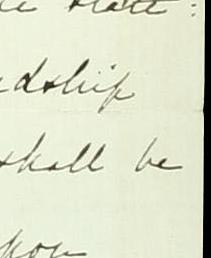 state:
dship
shall be
pon